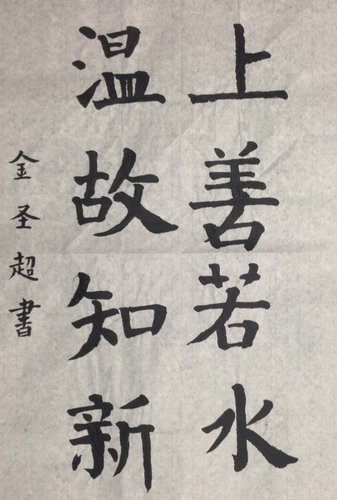 上善若水
温故知新
金圣超書